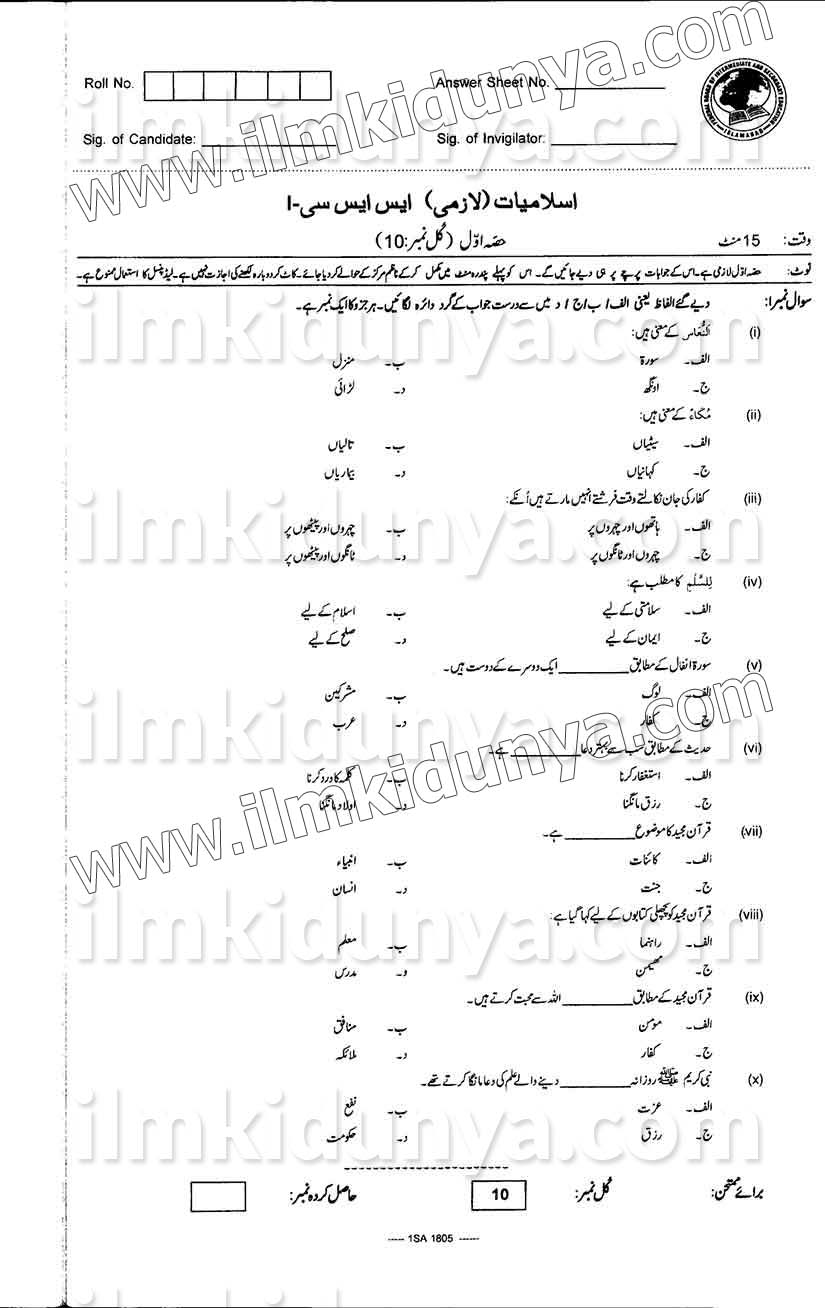 Roll No. Answer Sheet No.
FEDERAL BOARD OF INTERMEDIATE AND SECONDARY EDUCATION ISLAMABAD
Sig. of Candidate: Sig. of Invigilator:
www.ilmkidunya.com
اسلامیات (لازمی) ایس ایس سی-I
وقت: 15 منٹ حصّہ اوّل (کُل نمبر:10)
نوٹ: حصّہ اوّل لازمی ہے۔ اس کے جوابات پرچے پر ہی دیے جائیں گے۔ اس کو پہلے پندرہ منٹ میں مکمل کر کے ناظم مرکز کے حوالے کر دیا جائے۔ کاٹ کر دوبارہ لکھنے کی اجازت نہیں ہے۔ لیڈ پنسل کا استعمال ممنوع ہے۔
سوال نمبر۱: دیے گئے الفاظ یعنی الف / ب / ج / د میں سے درست جواب کے گرد دائرہ لگائیں۔ ہر جزو کا ایک نمبر ہے۔
(i) اَلنُّعَاس کے معنی ہیں:
الف۔ سورۃ ب۔ منزل
ج۔ اونگھ د۔ لڑائی
(ii) مُکَاءً کے معنی ہیں:
الف۔ سیٹیاں ب۔ تالیاں
ج۔ کہانیاں د۔ بیماریاں
(iii) کفار کی جان نکالتے وقت فرشتے انہیں مارتے ہیں اُنکے:
الف۔ ہاتھوں اور چہروں پر ب۔ چہروں اور پیٹھوں پر
ج۔ چہروں اور ٹانگوں پر د۔ ٹانگوں اور پیٹھوں پر
(iv) لِلسَّلْمِ کا مطلب ہے:
الف۔ سلامتی کے لیے ب۔ اسلام کے لیے
ج۔ ایمان کے لیے د۔ صلح کے لیے
(v) سورۃ انفال کے مطابق __________ ایک دوسرے کے دوست ہیں۔
الف۔ لوگ ب۔ مشرکین
ج۔ کفار د۔ عرب
(vi) حدیث کے مطابق سب سے بہتر دعا __________ ہے۔
الف۔ استغفار کرنا ب۔ کلمہ کا ورد کرنا
ج۔ رزق مانگنا د۔ اولاد مانگنا
(vii) قرآن مجید کا موضوع __________ ہے۔
الف۔ کائنات ب۔ انبیاء
ج۔ جنت د۔ انسان
(viii) قرآن مجید کو پچھلی کتابوں کے لیے کہا گیا ہے:
الف۔ راہنما ب۔ معلم
ج۔ مھیمن د۔ مدرس
(ix) قرآن مجید کے مطابق __________ اللہ سے محبت کرتے ہیں۔
الف۔ مومن ب۔ منافق
ج۔ کفار د۔ ملائکہ
(x) نبی کریم ﷺ روزانہ __________ دینے والے علم کی دعا مانگا کرتے تھے۔
الف۔ عزت ب۔ نفع
ج۔ رزق د۔ حکومت
برائے ممتحن: کُل نمبر: 10 حاصل کردہ نمبر:
----- 1SA 1805 ------